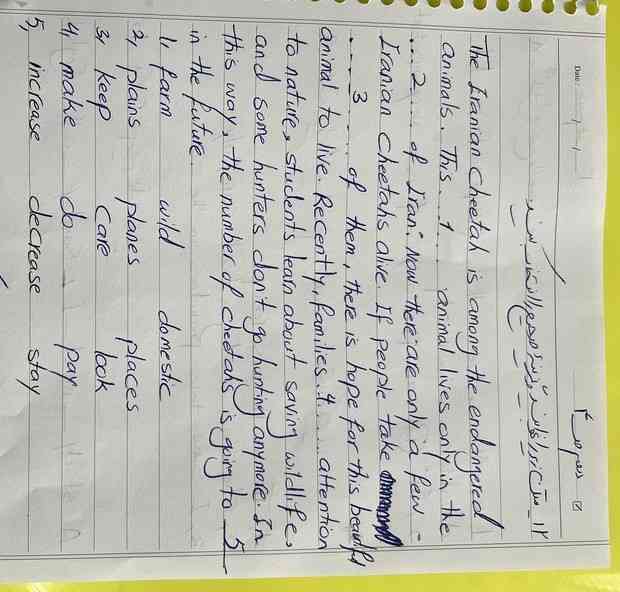 Date:
۱۲_ متن زیر را بخوانید و گزینه صحیح را انتخاب کنید.
The Iranian cheetah is among the endangered
animals. This ...1... animal lives only in the
...2... of Iran. Now there are only a few
Iranian cheetahs alive. If people take
...3... of them, there is hope for this beautiful
animal to live. Recently, families ..4... attention
to nature, students learn about saving wildlife,
and some hunters don't go hunting anymore. In
this way, the number of cheetahs is going to 5
in the future.
1, farm wild domestic
2, plains planes places
3, keep care look
4, make do pay
5, increase decrease stay